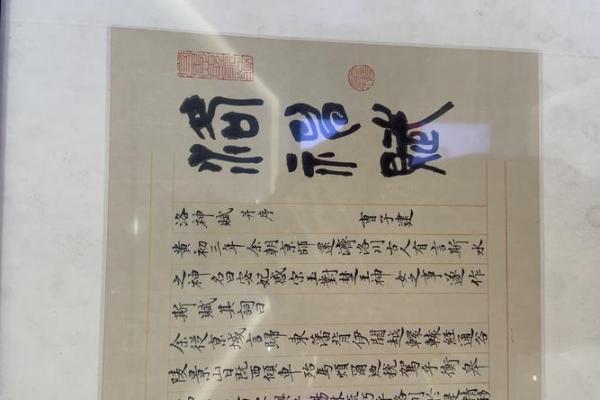 洛神賦
洛神賦 并序 曹子建
黃初三年余朝京師還濟洛川古人有言斯水
之神名曰宓妃感宋玉對楚王神女之事遂作
斯賦其詞曰
余從京城言歸東藩背伊闕越轘轅經通谷
陵景山日既西傾車殆馬煩爾迺稅駕乎衡皋